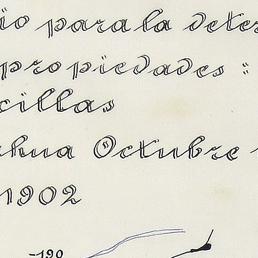 io para la deter
propiedades :
cillas
ahua Octubre
1902
-190